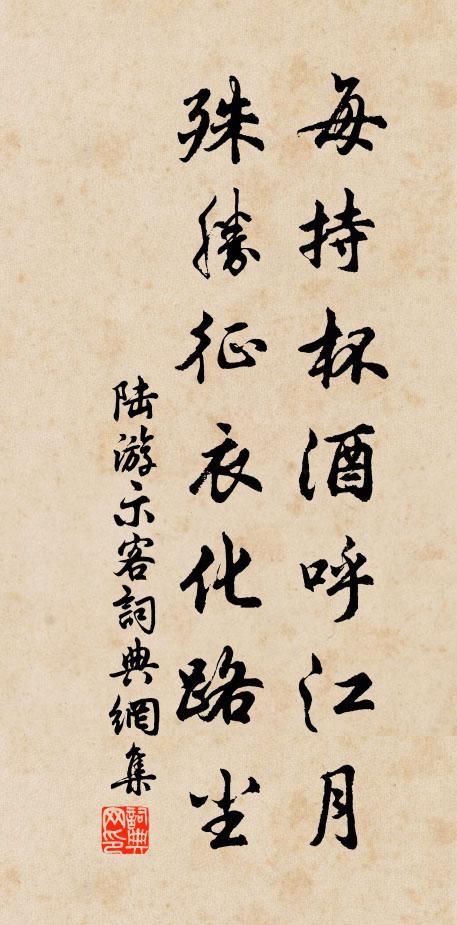 每持杯酒呼江月
殊勝征衣化路尘
陆游示客詞典網集
詞典网印